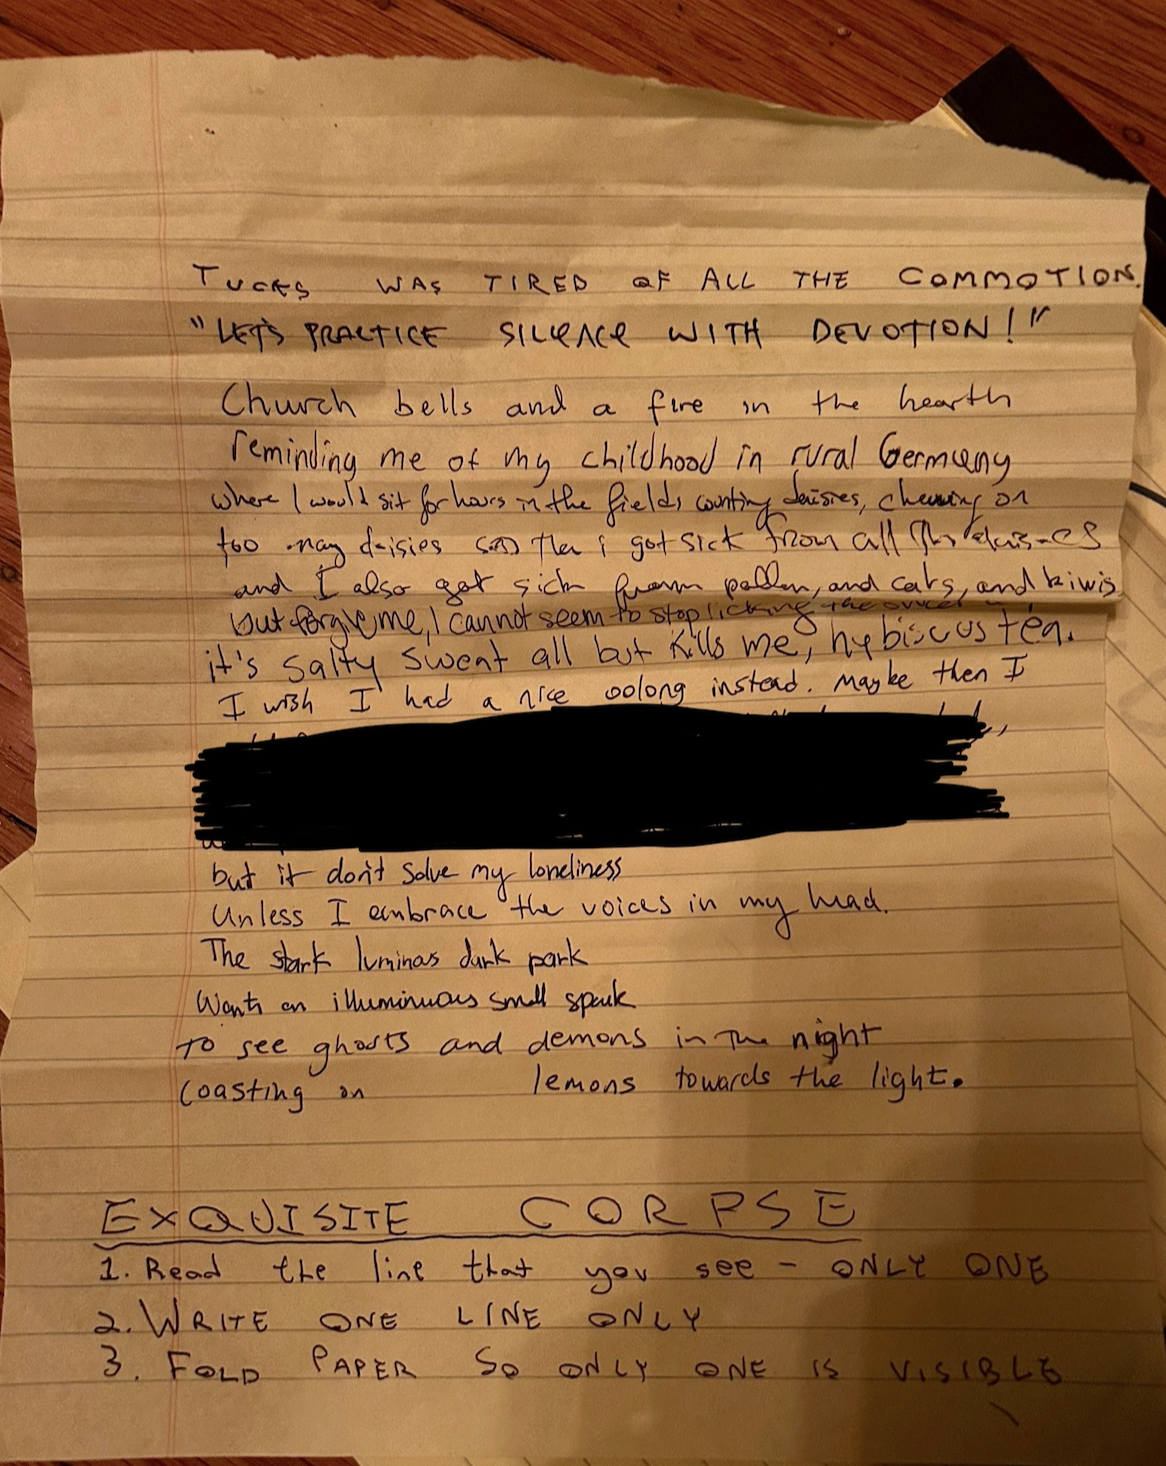 TUCKS WAS TIRED OF ALL THE COMMOTION.
"LET'S PRACTICE SILENCE WITH DEVOTION!"
Church bells and a fire in the hearth
reminding me of my childhood in rural Germany
where I would sit for hours in the fields counting daisies, chewing on
too many daisies and then i got sick from all the daisies
and I also got sick from pollen, and cats, and kiwis
but forgive me, I cannot seem to stop licking the
it's salty sweat all but kills me, hybiscus tea.
I wish I had a nice oolong instead. Maybe then I
but it don't solve my loneliness
Unless I embrace the voices in my head.
The stark luminous dark park
Wants an illuminuous small spark
To see ghosts and demons in the night
Coasting on lemons towards the light.
EXQUISITE CORPSE
1. Read the line that you see - ONLY ONE
2. WRITE ONE LINE ONLY
3. FOLD PAPER SO ONLY ONE IS VISIBLE